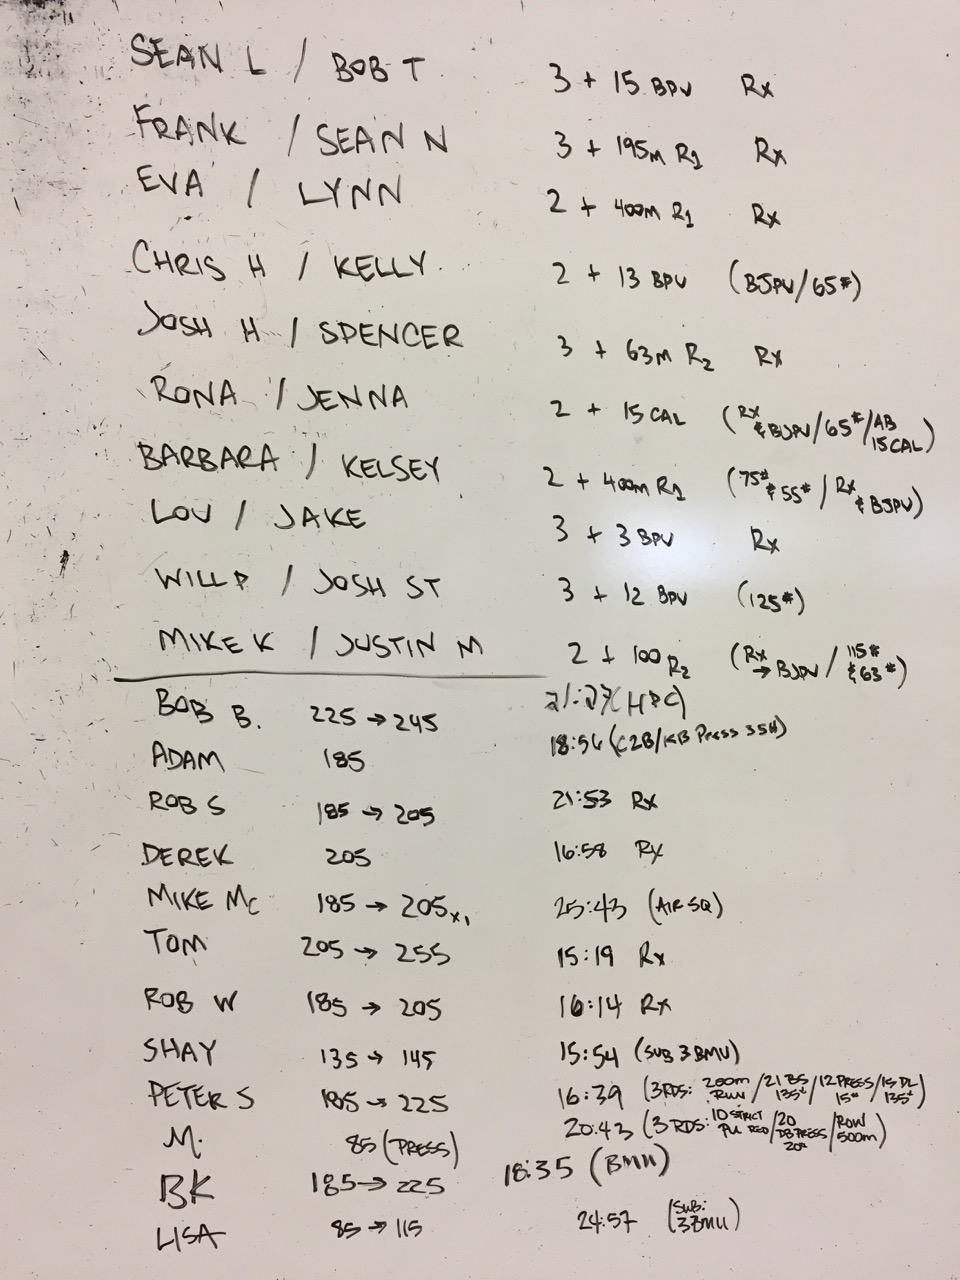 SEAN L / BOB T 3 + 15 BPU Rx
FRANK / SEAN N 3 + 195m R1 Rx
EVA / LYNN 2 + 400m R1 Rx
CHRIS H / KELLY 2 + 13 BPU (BJPU/65#)
JOSH H / SPENCER 3 + 63m R2 Rx
RONA / JENNA 2 + 15 CAL (Rx & BJPU/65#/AB 15 CAL)
BARBARA / KELSEY 2 + 400m R1 (75# & 55# / Rx & BJPU)
LOU / JAKE 3 + 3 BPU Rx
WILL P / JOSH ST 3 + 12 BPU (125#)
MIKE K / JUSTIN M 2 + 100 R2 (Rx → BJPU / 115# & 63#)
BOB B. 225 → 245 21:27
ADAM 185 18:56 (C2B/KB Press 35#)
ROB S 185 → 205 21:53 Rx
DEREK 205 16:58 Rx
MIKE Mc 185 → 205x1 25:43 (AIR SQ)
TOM 205 → 255 15:19 Rx
ROB W 185 → 205 16:14 Rx
SHAY 135 → 145 15:54 (SUB 3 BMU)
PETER S 185 → 225 16:39 (3RDS: 200m RUN / 21 BS 135# / 12 PRESS 15# / 15 DL 135#)
M. 85 (PRESS) 20:43 (3 RDS: 10 STRICT PU RED / 20 DB PRESS 20# / ROW 500m)
BK 185 → 225 18:35 (BMU)
LISA 85 → 115 24:57 (SUB: 3BMU)